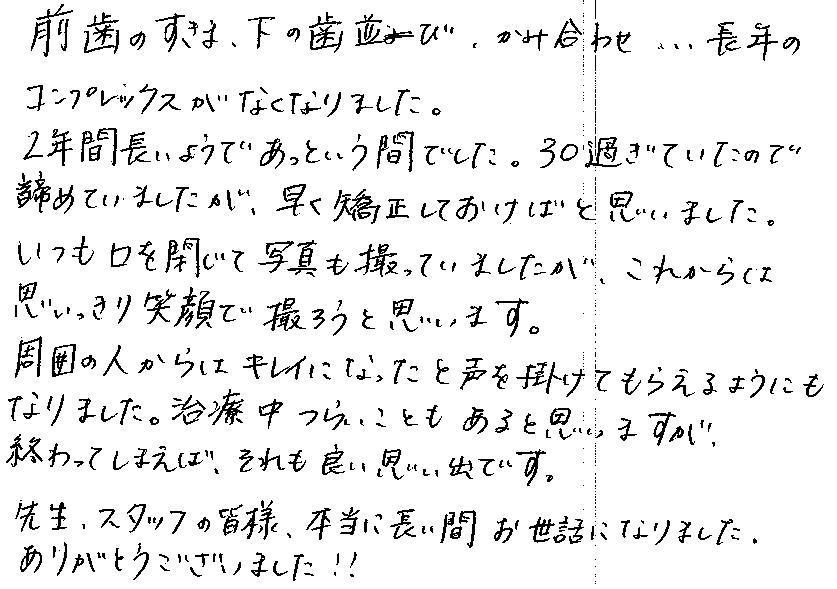 前歯のすきま、下の歯並び、かみ合わせ…長年の
コンプレックスがなくなりました。
2年間長いようであっという間でした。30過ぎていたので
諦めていましたが、早く矯正しておけばと思いました。
いつも口を閉じて写真も撮っていましたが、これからは
思いっきり笑顔で撮ろうと思います。
周囲の人からはキレイになったと声を掛けてもらえるようにも
なりました。治療中つらいこともあると思いますが、
終わってしまえば、それも良い思い出です。
先生、スタッフの皆様、本当に長い間お世話になりました。
ありがとうございました!!